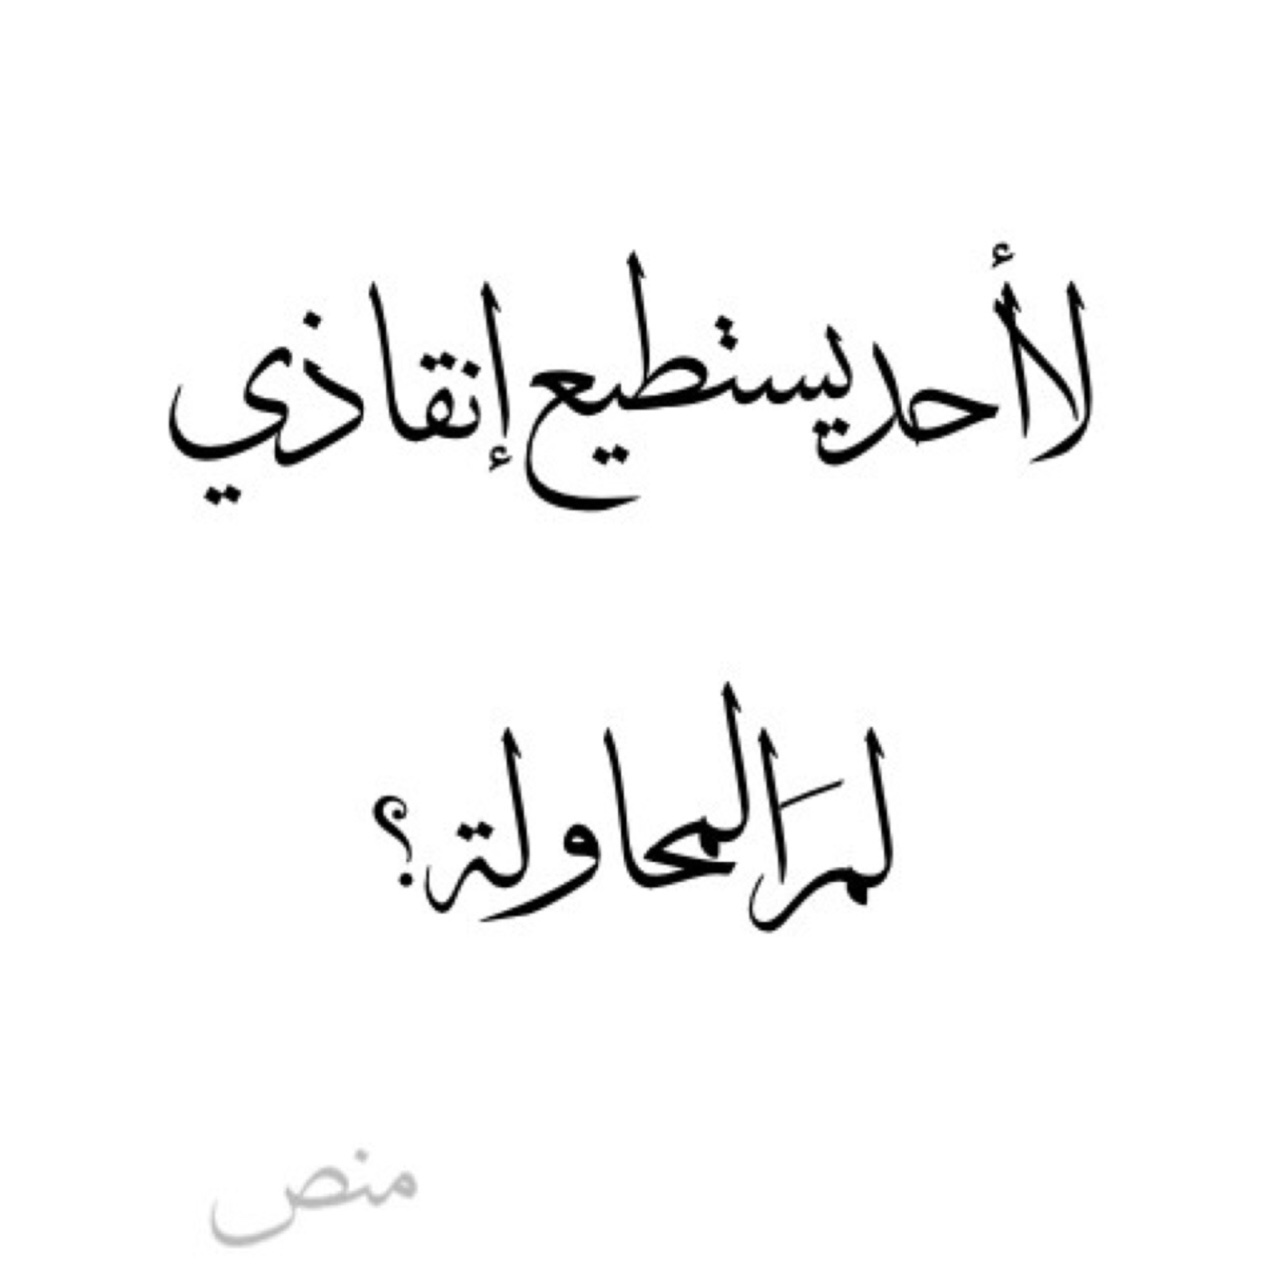 لا أحد يستطيع إنقاذي
لمَ المحاولة؟
منص